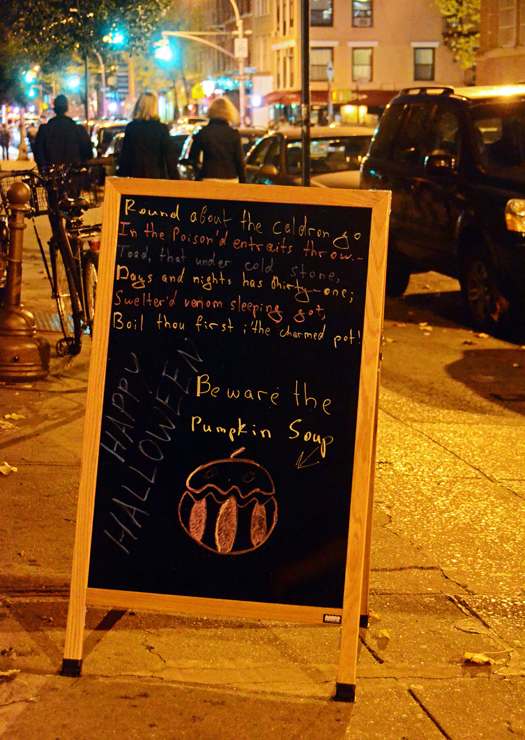 Round about the Caldron go
In the Poison'd entraits throw.-
Toad, that under cold stone,
Days and nights has thirty-one;
Swelter'd venom sleeping got,
Boil thou first i'the charmed pot!
HAPPY
HALLOWEEN
Beware the
Pumpkin Soup